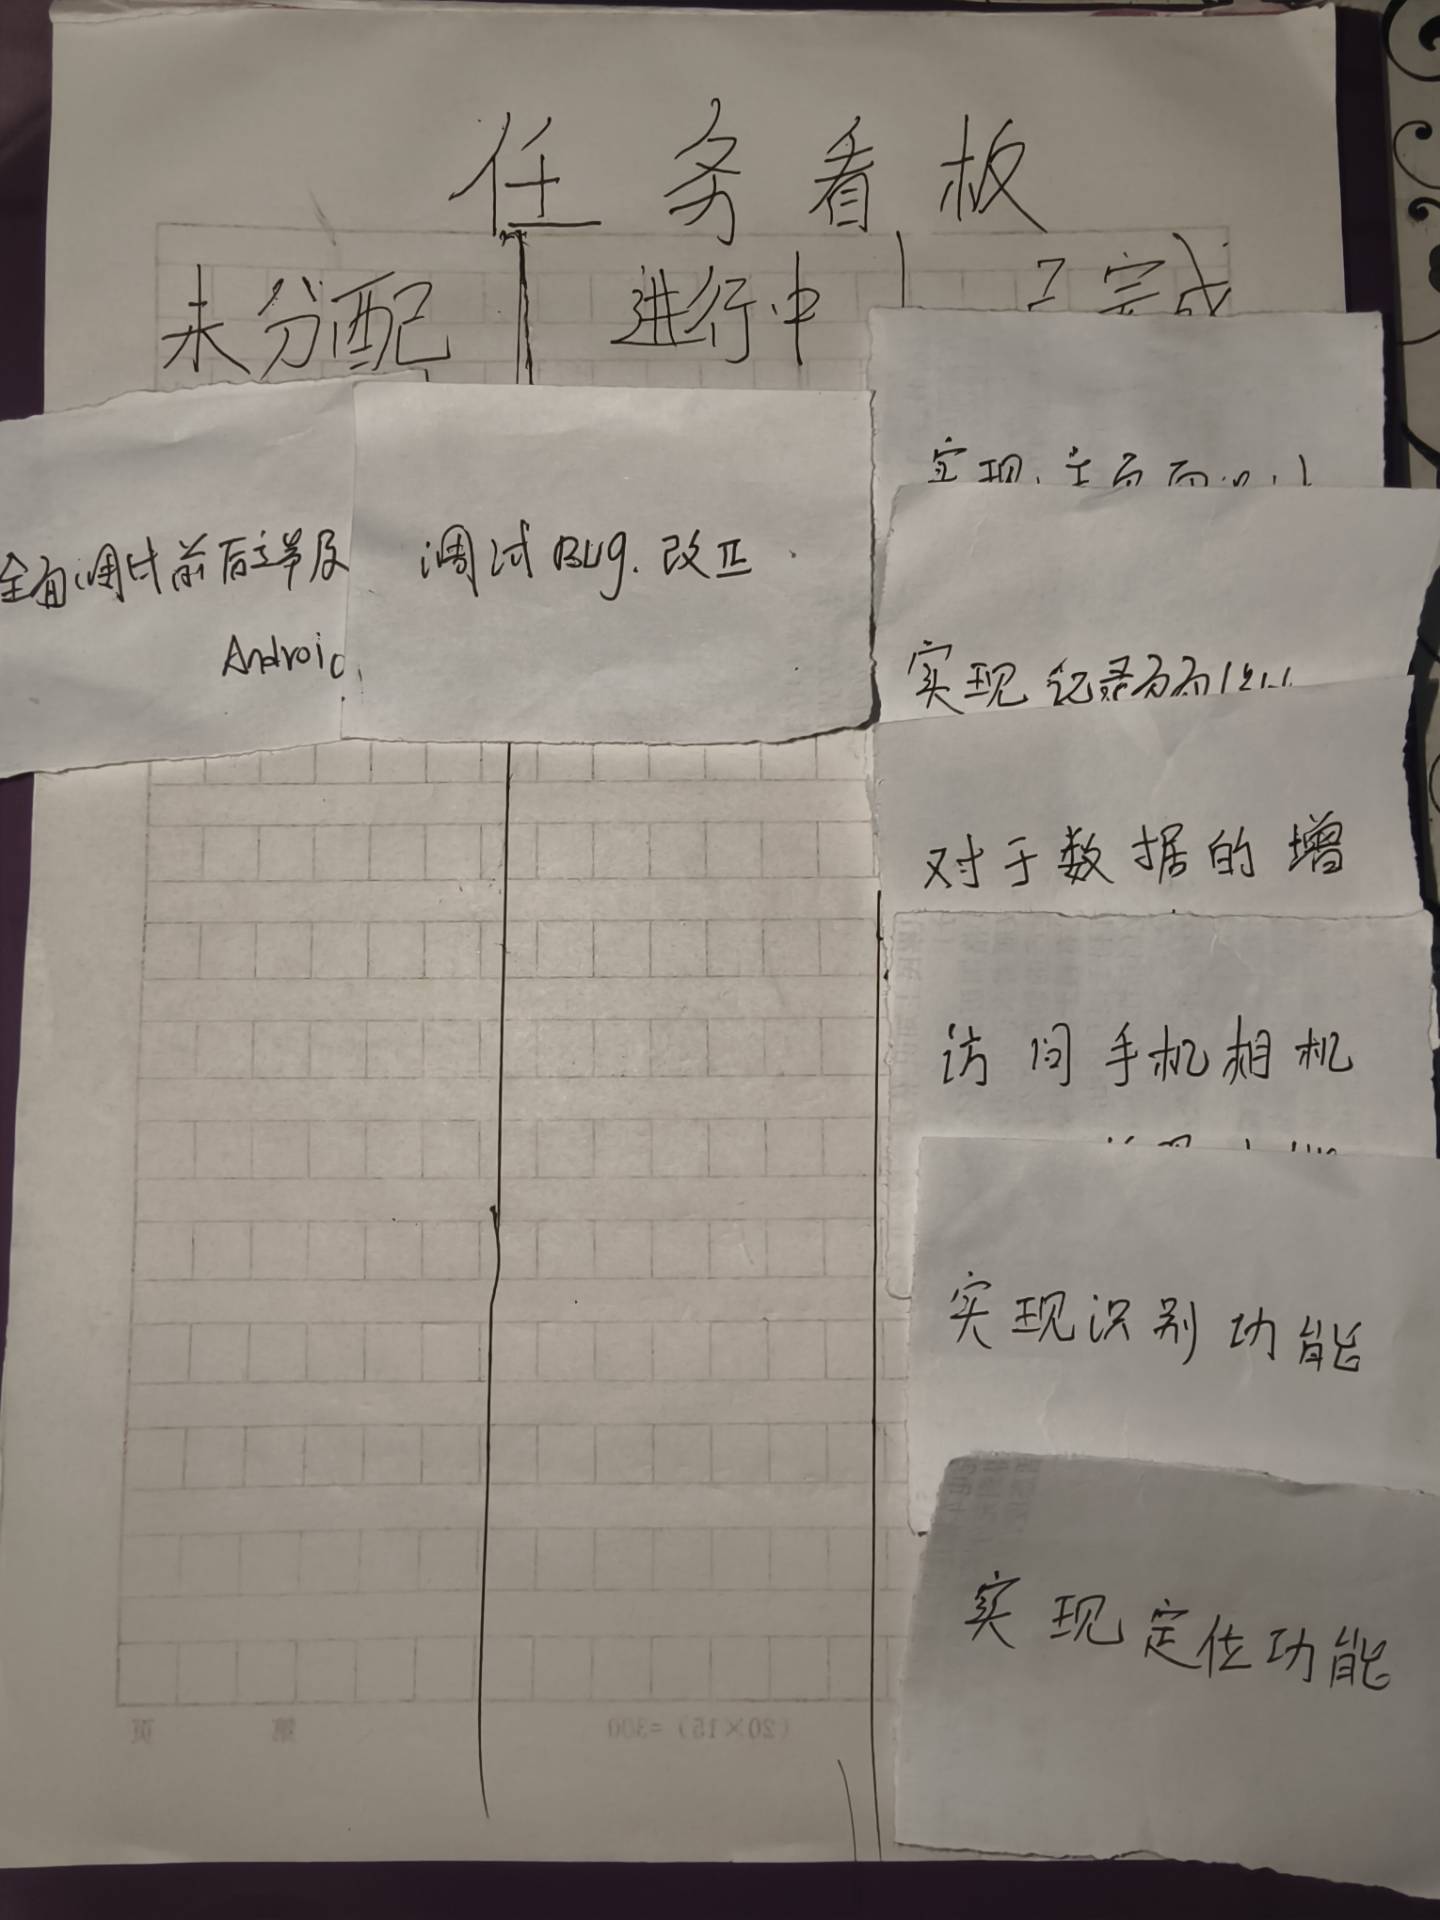 任务看板
未分配 进行中 已完成
全面调试前后端及
Android
调试Bug.改正.
实现主页面设计
实现记录页面
对于数据的增
访问手机相机
实现识别功能
实现定位功能
页 第 (20×15)=300